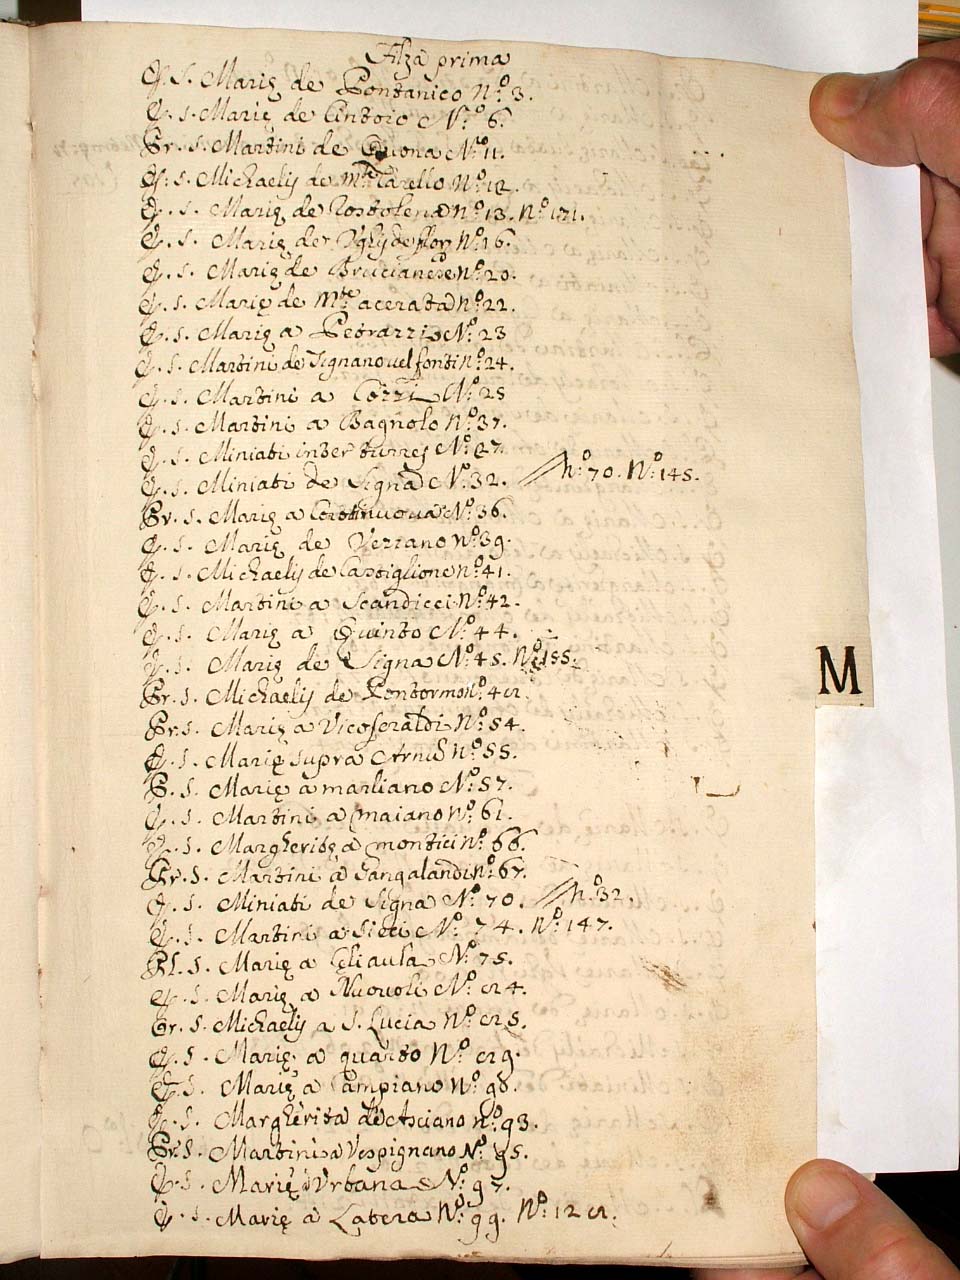 Filza prima
E. S. Marię de Pontanico N.º 3.
E. S. Marię de Cintoio N.º 6.
Pr. S. Martini de N.º 11.
E. S. Michaelis de m.te Carello N.º 12.
E. S. Marię de N.º 13. N.º 171.
E. S. Marię de N.º 16.
E. S. Marię de Brucianese N.º 20.
E. S. Marię de m.te acerata N.º 22.
E. S. Marię a Petrazzi N.º 23
E. S. Martini de Signano vel fonti N.º 24.
E. S. Martini a Cozzi N.º 25
E. S. Martini a Bagnolo N.º 37.
E. S. Miniati inter turres N.º 27.
E. S. Miniati de Signa N.º 32. // N.º 70. N.º 145.
Pr. S. Marię a N.º 36.
E. S. Marię de Verzano N.º 39.
E. S. Michaelis de Castiglione N.º 41.
E. S. Martini a Scandicci N.º 42.
E. S. Marię a Quinto N.º 44.
E. S. Marię de Signa N.º 45. N.º 155.
Pr. S. Michaelis de Pontormo N.º 48.
Pr. S. Marię a Vicoferaldi N.º 54.
E. S. Marię supra Arnũ N.º 55.
P. S. Marię a marliano N.º 57.
E. S. Martini a maiano N.º 61.
E. S. Margheritę a montici N.º 66.
Pr. S. Martini a Gangalandi N.º 67.
E. S. Miniati de Signa N.º 70. // N.º 32.
E. S. Martini a Sicci N.º 74. N.º 147.
Pl. S. Marię a N.º 75.
E. S. Marię a Nuovoli N.º 84.
Pr. S. Michaelis a S. Lucia N.º 85.
E. S. Marię a quarto N.º 89.
E. S. Marię a Campiano N.º 98.
E. S. Margherita de Asciano N.º 93.
Pr. S. Martini a Vespignano N.º 95.
E. S. Marię Urbana N.º 97.
E. S. Marię a Latera N.º 99. N.º 128.
M